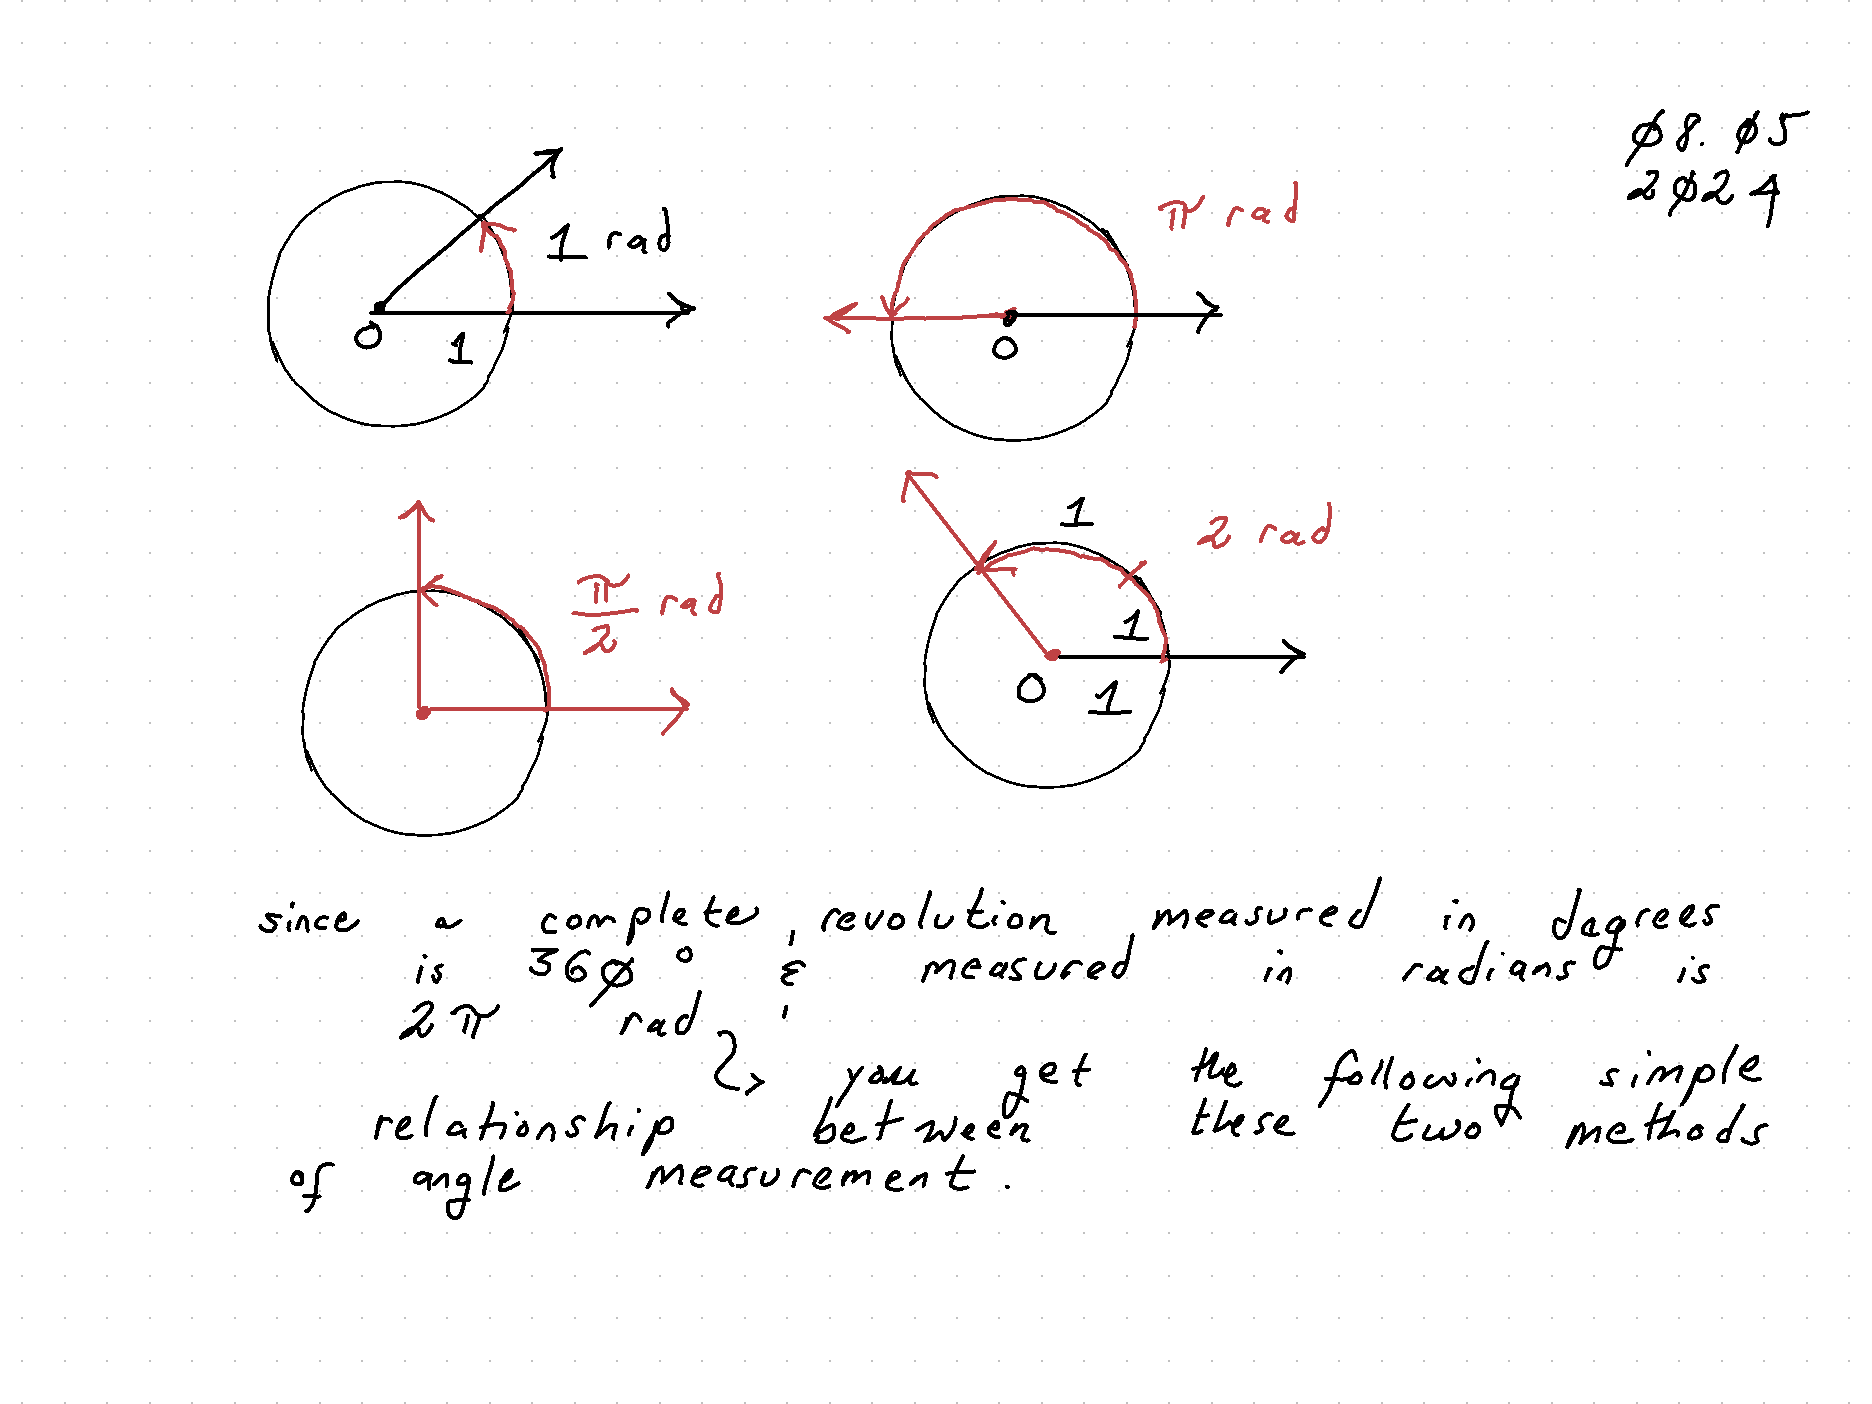 ø8. ø5
2ø24
1 rad
0
1
π rad
0
π/2 rad
1
2 rad
1
0
1
since a complete revolution measured in dagrees
is 36ø° & measured in radians is
2π rad
you get the following simple
relationship between these two methods
of angle measurement.